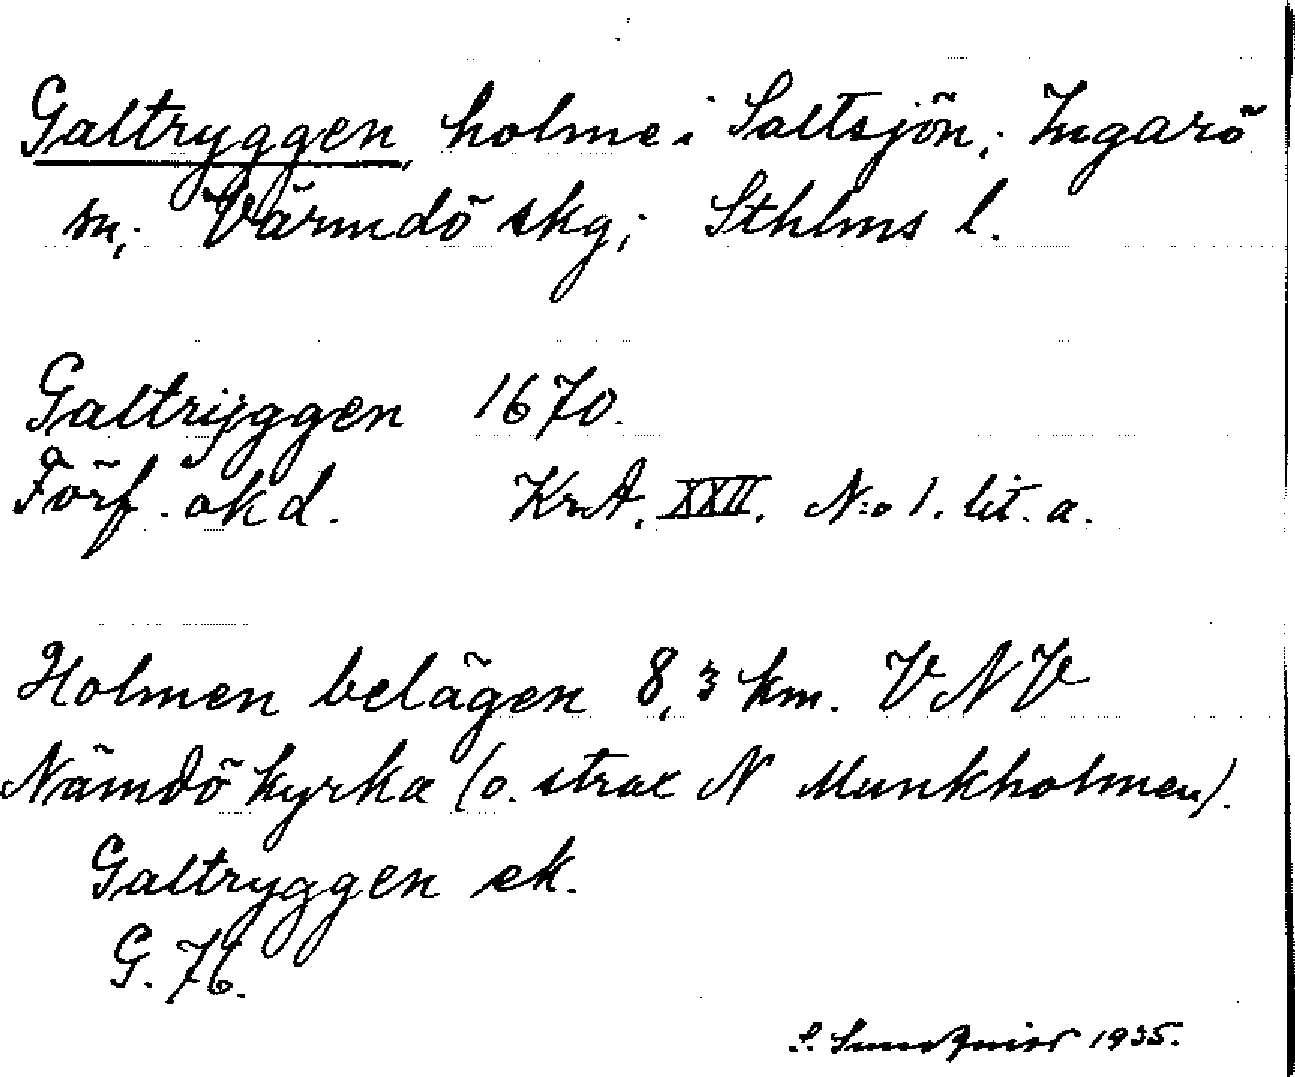 Galtryggen, holme i Saltsjön; Ingarö
sn; Värmdö skg; Sthlms l.
Galtrÿggen 1670.
Förf. okd. KrA. XXII. N:o 1. lit. a.
Holmen belägen 8,3 km. VNV
Nämdö kyrka (o. strax N Munkholmen).
Galtryggen ek.
G. 76.
S. 1935.